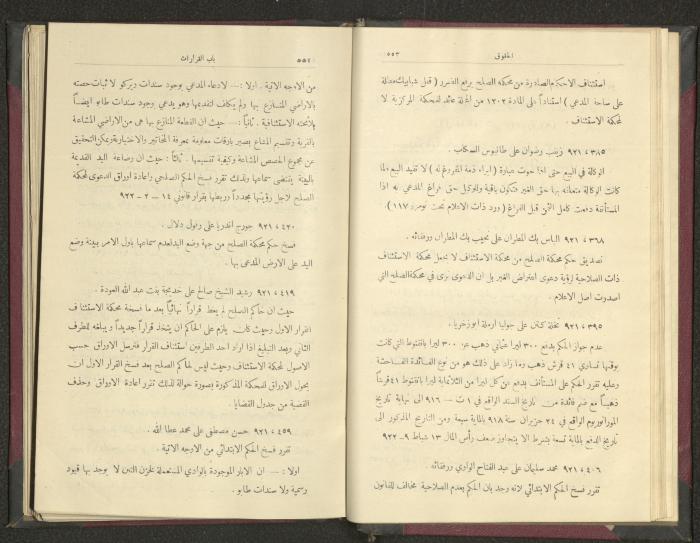 الحقوق
٥٥٣
استئناف الاحكام الصادرة من محكمة الصلح برفع الضرر ( قفل شبابيك مطلة
على ساحة المدعي ) استناداً الى المادة ١٢٠٢ من المجلة عائد لمحكمة المركزية لا
لمحكمة الاستئناف .
٩٢١،٣٨٥ زينب رضوان على طانيوس السكاب .
الوكالة في البيع حتى اذا حوت عبارة ( ابراء ذمة المفروغ له ) لا تفيد البيع ولما
كانت الوكالة متعلقة بها حق الغير فتكون باقية وللوكيل حق فراغ المدعى به اذا
المستأنفة دفعت كامل الثمن قبل الفراغ ( ورد ذات الاعلام تحت نومرو ١١٧ )
٩٢١،٣٦٨ الياس بك المطران على نجيب بك المطران ورفقائه .
تصديق حكم محكمة الصلح من محكمة الاستئناف لا يجعل محكمة الاستئناف
ذات الصلاحية لرؤية دعوى اعتراض الغير بل ان الدعوى ترى في محكمة الصلح التي
اصدرت اصل الاعلام .
٩٢١،٣٩٥ نخلة كنعان على جوليا ارملة ابو زخريا .
عدم جواز الحكم بدفع ٣٠٠ ليرا عثماني ذهب عن ٣٠٠ ليرا بانقنوط التي كانت
بوقتها تساوي ٤١ قرش ذهب وما زاد على ذلك هو من نوع الفائدة الفاحشة
وعليه تقرر الحكم على المستأنف بدفع عن كل ليرا من الثلاثماية ليرا بانقنوط ٤١ قرشاً
ذهباً مع ضم فائدة من تاريخ السند الواقع في ١ ت — ٩١٦ الى نهاية تاريخ
الموراتوريوم الواقع في ٢٤ حزيران سنة ٩١٨ بالماية سبعة ومن التاريخ المذكور الى
تاريخ الدفع بالماية تسعة بشرط الا يتجاوز ضعف رأس المال ١٣ شباط ٩—٩٢٢
٩٢١،٤٠٦ محمد سليمان على عبد الفتاح الواوي ورفقائه .
تقرر فسخ الحكم الابتدائي لانه وجد بان الحكم بعدم الصلاحية مخالف للقانون
باب القرارات
٥٥٤
من الاوجه الاتية . اولاً :— لادعاء المدعي بوجود سندات ويركو لاثبات حصته
بالاراضي المتنازع بها ولم يكلف لتقديمها وهو يدعي بوجود سندات طابو ايضاً
بلائحته الاستئنافية . ثانياً :— حيث ان القطعة المنازع بها هي من الاراضي المشاعة
بالقرية وتقسيم المشاع يصير باوقات معلومة بمعرفة المخاتير والاختيارية فيمكن التحقيق
عن مجموع الحصص المشاعة وكيفية تقسيمها . ثالثاً : حيث ان وضاعة اليد القديمة
بالبينة يقتضى سماعها ولذلك تقرر فسخ الحكم الصلحي واعادة اوراق الدعوى لمحكمة
الصلح لاجل رؤيتها مجدداً وربطها بقرار قانوني ١٤ — ٢ — ٩٢٢
٩٢١،٤٢٠ جورج اندريا على رفول دلال .
فسخ حكم محكمة الصلح من جهة وضع اليد لعدم سماعها باول الامر ببينة وضع
اليد على الارض المدعى بها .
٩٢١،٤١٩ رشيد الشيخ صالح على خديجة بنت عبد الله العودة .
حيث ان حاكم الصلح لم يعط قراراً نهائياً بعد ما فسخت محكمة الاستئناف
القرار الاول وحيث كان يلزم على الحاكم ان يتخذ قراراً جديداً ويبلغه للطرف
الثاني وبعد التبليغ اذا اراد احد الطرفين استئناف القرار فترسل الاوراق حسب
الاصول لمحكمة الاستئناف وحيث ليس لحاكم الصلح بعد فسخ القرار الاول ان
يحول الاوراق للمحكمة المذكورة بصورة حوالة لذلك تقرر اعادة الاوراق وحذف
القضية من جدول القضايا .
٩٢١،٤٥٩ حسن مصطفى على محمد عطا الله .
تقرر فسخ الحكم الابتدائي من الاوجه الاتية .
اولاً : — ان الابار الموجودة بالوادي المستعملة لخزن التبن لا يوجد بها قيود
رسمية ولا سندات طابو .